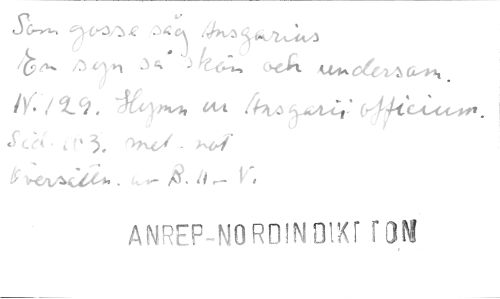 Som gosse såg Ansgarius
En syn så skön och undersam.
N. 129. Hymn ur Ansgarii officium.
Sid. 113. mel. not
Översättn. av B. A-V.
ANREP-NORDIN DIKT TON